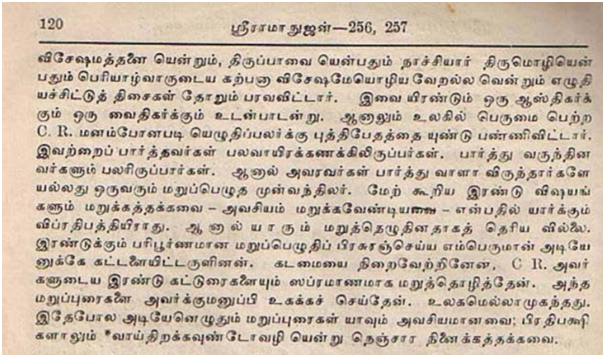 120 ஸ்ரீராமாநுஜன்—256, 257
விசேஷமத்தனை யென்றும், திருப்பாவை யென்பதும் நாச்சியார் திருமொழியென்
பதும் பெரியாழ்வாருடைய கற்பனா விசேஷமேயொழிய வேறல்ல வென்றும் எழுதி
யச்சிட்டுத் திசைகள் தோறும் பரவவிட்டார். இவை யிரண்டும் ஒரு ஆஸ்திகர்க்
கும் ஒரு வைதிகர்க்கும் உடன்பாடன்று. ஆனாலும் உலகில் பெருமை பெற்ற
C. R. மனம்போனபடி யெழுதிப்பலர்க்கு புத்திபேதத்தை யுண்டு பண்ணிவிட்டார்.
இவற்றைப் பார்த்தவர்கள் பலவாயிரக்கணக்கிலிருப்பர்கள். பார்த்து வருந்தின
வர்களும் பலரிருப்பார்கள். ஆனால் அவரவர்கள் பார்த்து வாளா விருந்தார்களே
யல்லது ஒருவரும் மறுப்பெழுத முன்வந்திலர். மேற் கூறிய இரண்டு விஷயங்
களும் மறுக்கத்தக்கவை – அவசியம் மறுக்கவேண்டியவை – என்பதில் யார்க்கும்
விப்ரதிபத்தியிராது. ஆனால் யாரும் மறுத்தெழுதினதாகத் தெரிய வில்லை.
இரண்டுக்கும் பரிபூர்ணமான மறுப்பெழுதிப் பிரசுரஞ்செய்ய எம்பெருமான் அடியே
னுக்கே கட்டளையிட்டருளினன். கடமையை நிறைவேற்றினேன். C R. அவர்
களுடைய இரண்டு கட்டுரைகளையும் ஸப்ரமாணமாக மறுத்தொழித்தேன். அந்த
மறுப்புரைகளை அவர்க்குமனுப்பி உகக்கச் செய்தேன். உலகமெல்லாமுகந்தது.
இதேபோல அடியேனெழுதும் மறுப்புரைகள் யாவும் அவசியமானவை; பிரதிபக்ஷி
களாலும் "வாய்திறக்கவுண்டோவழி யென்று நெஞ்சார நினைக்கத்தக்கவை.